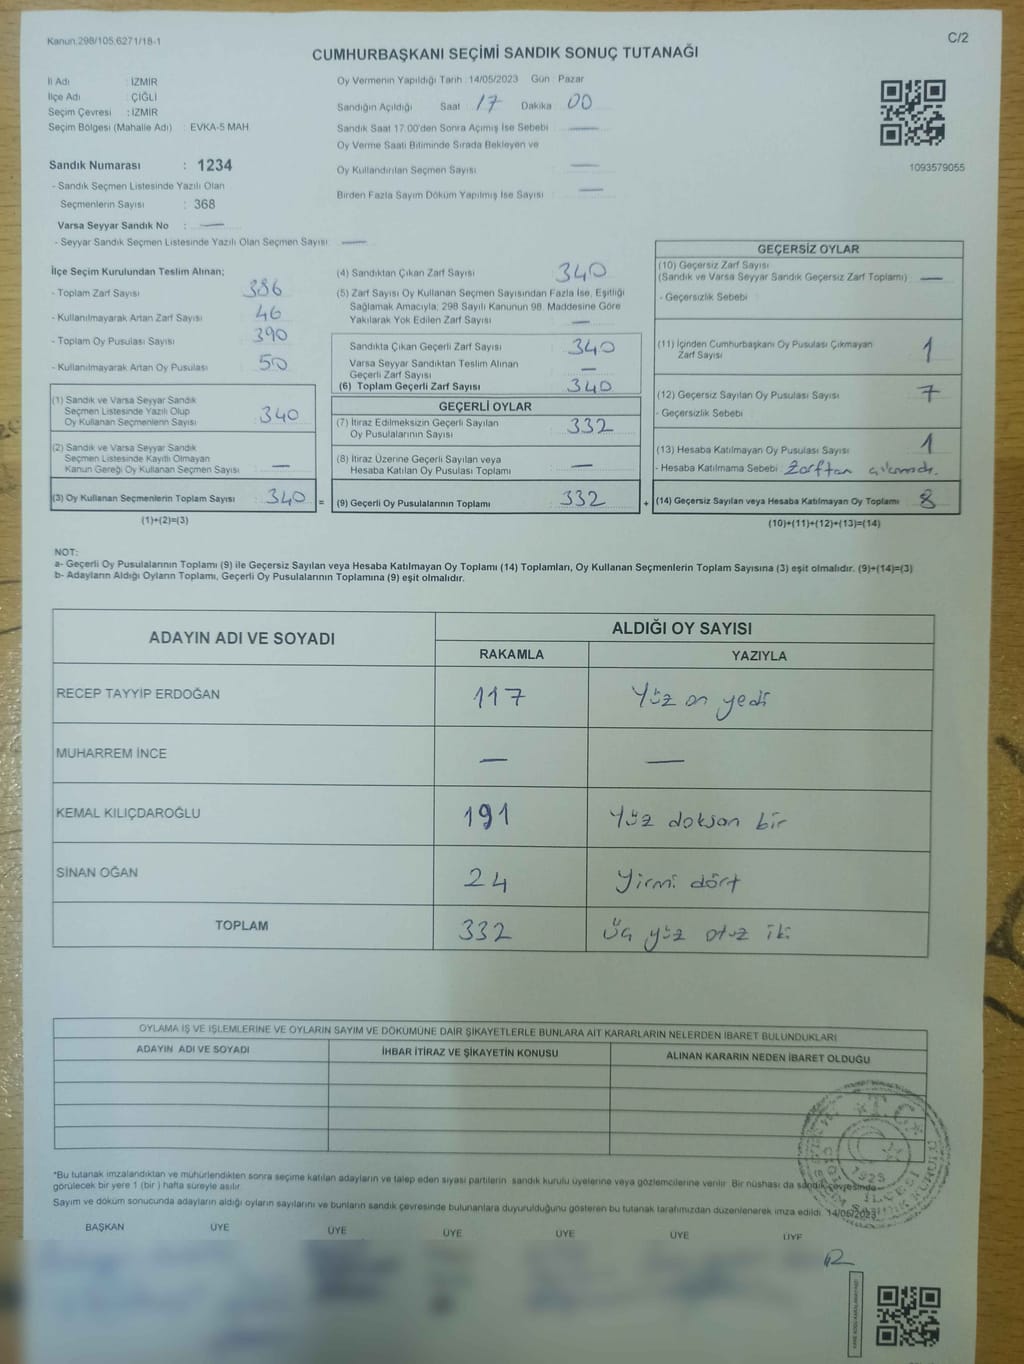 Kanun.298/105,6271/18-1
C/2
CUMHURBAŞKANI SEÇİMİ SANDIK SONUÇ TUTANAĞI
İl Adı : İZMİR
İlçe Adı : ÇİĞLİ
Seçim Çevresi : İZMİR
Seçim Bölgesi (Mahalle Adı) : EVKA-5 MAH
Oy Vermenin Yapıldığı Tarih : 14/05/2023 Gün : Pazar
Sandığın Açıldığı Saat : 17 Dakika : 00
Sandık Saat 17.00'den Sonra Açımış İse Sebebi : —
Oy Verme Saati Bitiminde Sırada Bekleyen ve
Oy Kullandırılan Seçmen Sayısı : —
Birden Fazla Sayım Döküm Yapılmış İse Sayısı : —
1093579055
Sandık Numarası : 1234
- Sandık Seçmen Listesinde Yazılı Olan
Seçmenlerin Sayısı : 368
Varsa Seyyar Sandık No : —
- Seyyar Sandık Seçmen Listesinde Yazılı Olan Seçmen Sayısı : —
İlçe Seçim Kurulundan Teslim Alınan;
- Toplam Zarf Sayısı : 386
- Kullanılmayarak Artan Zarf Sayısı : 46
- Toplam Oy Pusulası Sayısı : 390
- Kullanılmayarak Artan Oy Pusulası : 50
(1) Sandık ve Varsa Seyyar Sandık
Seçmen Listesinde Yazılı Olup
Oy Kullanan Seçmenlerin Sayısı : 340
(2) Sandık ve Varsa Seyyar Sandık
Seçmen Listesinde Kayıtlı Olmayan
Kanun Gereği Oy Kullanan Seçmen Sayısı : —
(3) Oy Kullanan Seçmenlerin Toplam Sayısı : 340 =
(1)+(2)=(3)
(4) Sandıktan Çıkan Zarf Sayısı : 340
(5) Zarf Sayısı Oy Kullanan Seçmen Sayısından Fazla İse, Eşitliği
Sağlamak Amacıyla; 298 Sayılı Kanunun 98. Maddesine Göre
Yakılarak Yok Edilen Zarf Sayısı : —
Sandıkta Çıkan Geçerli Zarf Sayısı : 340
Varsa Seyyar Sandıktan Teslim Alınan
Geçerli Zarf Sayısı : —
(6) Toplam Geçerli Zarf Sayısı : 340
GEÇERLİ OYLAR
(7) İtiraz Edilmeksizin Geçerli Sayılan
Oy Pusulalarının Sayısı : 332
(8) İtiraz Üzerine Geçerli Sayılan veya
Hesaba Katılan Oy Pusulası Toplamı : —
(9) Geçerli Oy Pusulalarının Toplamı : 332 +
GEÇERSİZ OYLAR
(10) Geçersiz Zarf Sayısı
(Sandık ve Varsa Seyyar Sandık Geçersiz Zarf Toplamı) : —
- Geçersizlik Sebebi :
(11) İçinden Cumhurbaşkanı Oy Pusulası Çıkmayan
Zarf Sayısı : 1
(12) Geçersiz Sayılan Oy Pusulası Sayısı : 7
- Geçersizlik Sebebi :
(13) Hesaba Katılmayan Oy Pusulası Sayısı : 1
- Hesaba Katılmama Sebebi : Zarftan çıkmadı.
(14) Geçersiz Sayılan veya Hesaba Katılmayan Oy Toplamı : 8
(10)+(11)+(12)+(13)=(14)
NOT:
a- Geçerli Oy Pusulalarının Toplamı (9) ile Geçersiz Sayılan veya Hesaba Katılmayan Oy Toplamı (14) Toplamları, Oy Kullanan Seçmenlerin Toplam Sayısına (3) eşit olmalıdır. (9)+(14)=(3)
b- Adayların Aldığı Oyların Toplamı, Geçerli Oy Pusulalarının Toplamına (9) eşit olmalıdır.
ADAYIN ADI VE SOYADI ALDIĞI OY SAYISI
RAKAMLA YAZIYLA
RECEP TAYYİP ERDOĞAN 117 Yüz on yedi
MUHARREM İNCE — —
KEMAL KILIÇDAROĞLU 191 Yüz doksan bir
SİNAN OĞAN 24 Yirmi dört
TOPLAM 332 Üç yüz otuz iki
OYLAMA İŞ VE İŞLEMLERİNE VE OYLARIN SAYIM VE DÖKÜMÜNE DAİR ŞİKAYETLERLE BUNLARA AİT KARARLARIN NELERDEN İBARET BULUNDUKLARI
ADAYIN ADI VE SOYADI İHBAR İTİRAZ VE ŞİKAYETİN KONUSU ALINAN KARARIN NEDEN İBARET OLDUĞU
T.C.
1923
*Bu tutanak imzalandıktan ve mühürlendikten sonra seçime katılan adayların ve talep eden siyasi partilerin sandık kurulu üyelerine veya gözlemcilerine verilir. Bir nüshası da sandık çevresinde
görülecek bir yere 1 (bir ) hafta süreyle asılır.
Sayım ve döküm sonucunda adayların aldığı oyların sayılarını ve bunların sandık çevresinde bulunanlara duyurulduğunu gösteren bu tutanak tarafımızdan düzenlenerek imza edildi. 14/05/2023
BAŞKAN ÜYE ÜYE ÜYE ÜYE ÜYE ÜYE